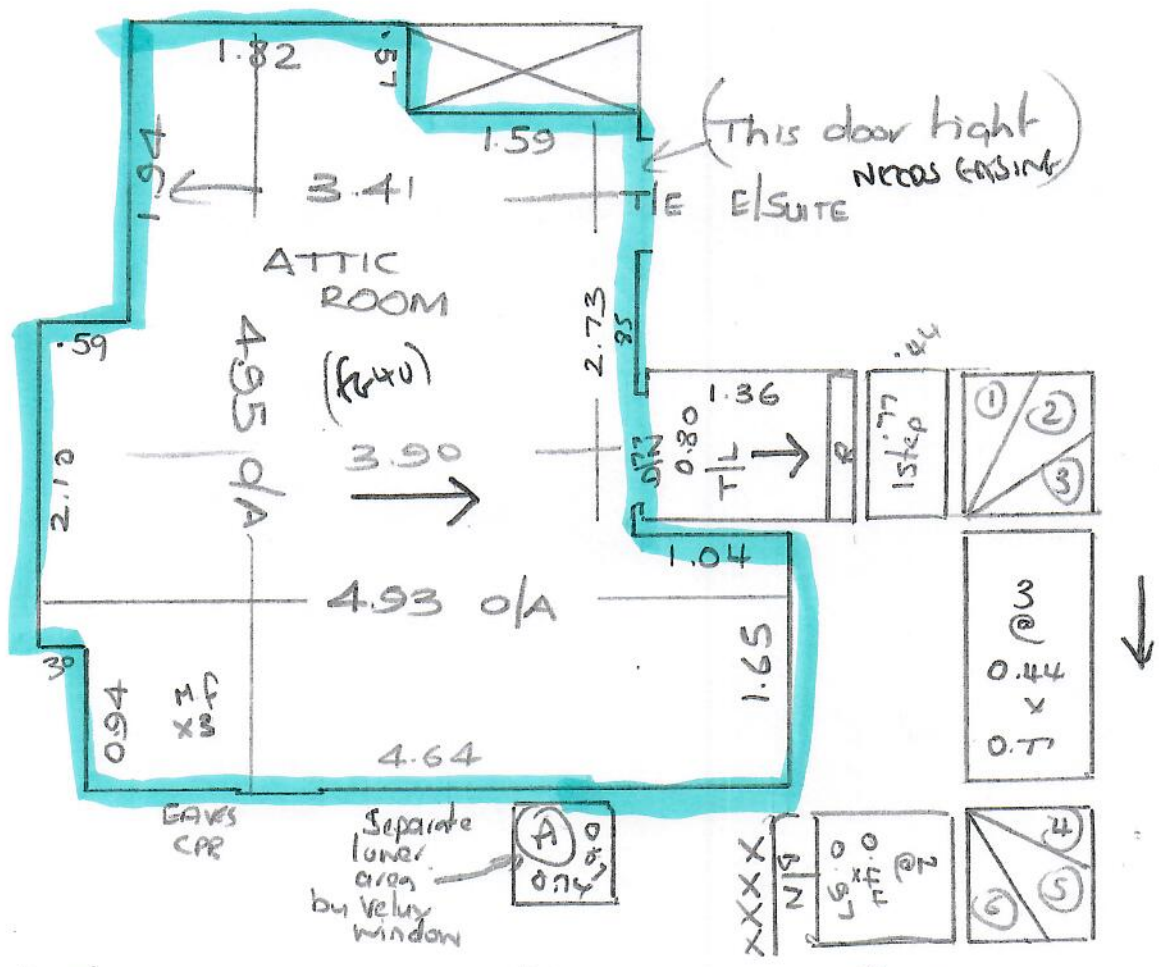 1.82
.57
1.59
(This door tight
NEEDS EASING)
1.94
3.41
T/E E/SUITE
ATTIC
ROOM
.59
4.95 O/A
2.73
85
.44
1.36
0.80
T/L
R
1 step
.77
1
2
3
2.10
3.90
1.04
4.93 O/A
3
@
0.44
x
0.77
30
0.94
1.65
4.64
EAVES
CPB
Separate
lower
area
by velux
window
A
0.74
XXXX
@2
4
5
6